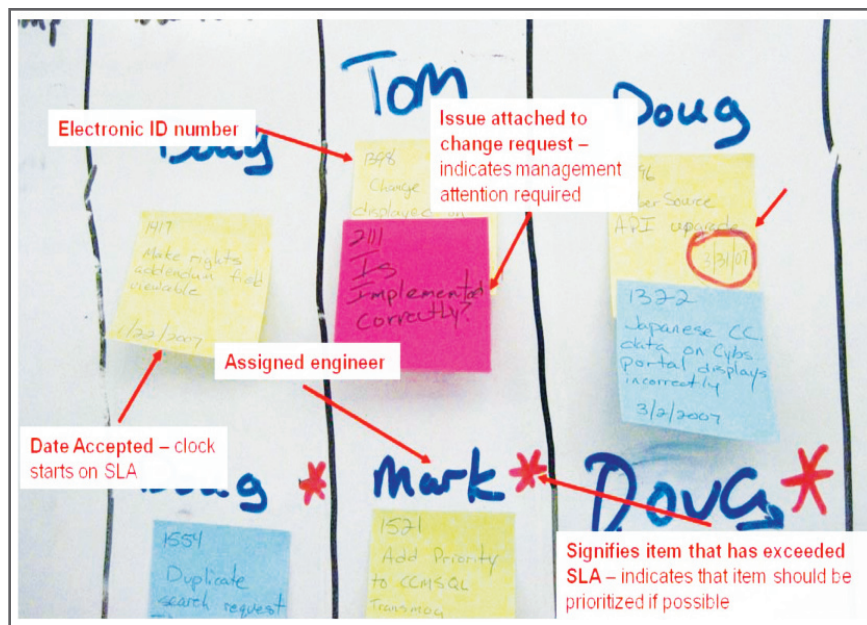 Tom
Doug
Electronic ID number
Issue attached to
change request –
indicates management
attention required
1398
Change
displayed on
96
Source
API upgrade
3/31/07
1917
Make rights
addendum field
viewable
1/22/2007
2111
Is
Implemented
Correctly?
1322
Japanese CC.
data on Cybs.
portal displays
incorrectly
3/2/2007
Assigned engineer
Date Accepted – clock
starts on SLA
Mark *
Doug *
1554
Duplicate
search request
1521
Add Priority
to CCMSQL
Transmog
Signifies item that has exceeded
SLA – indicates that item should be
prioritized if possible